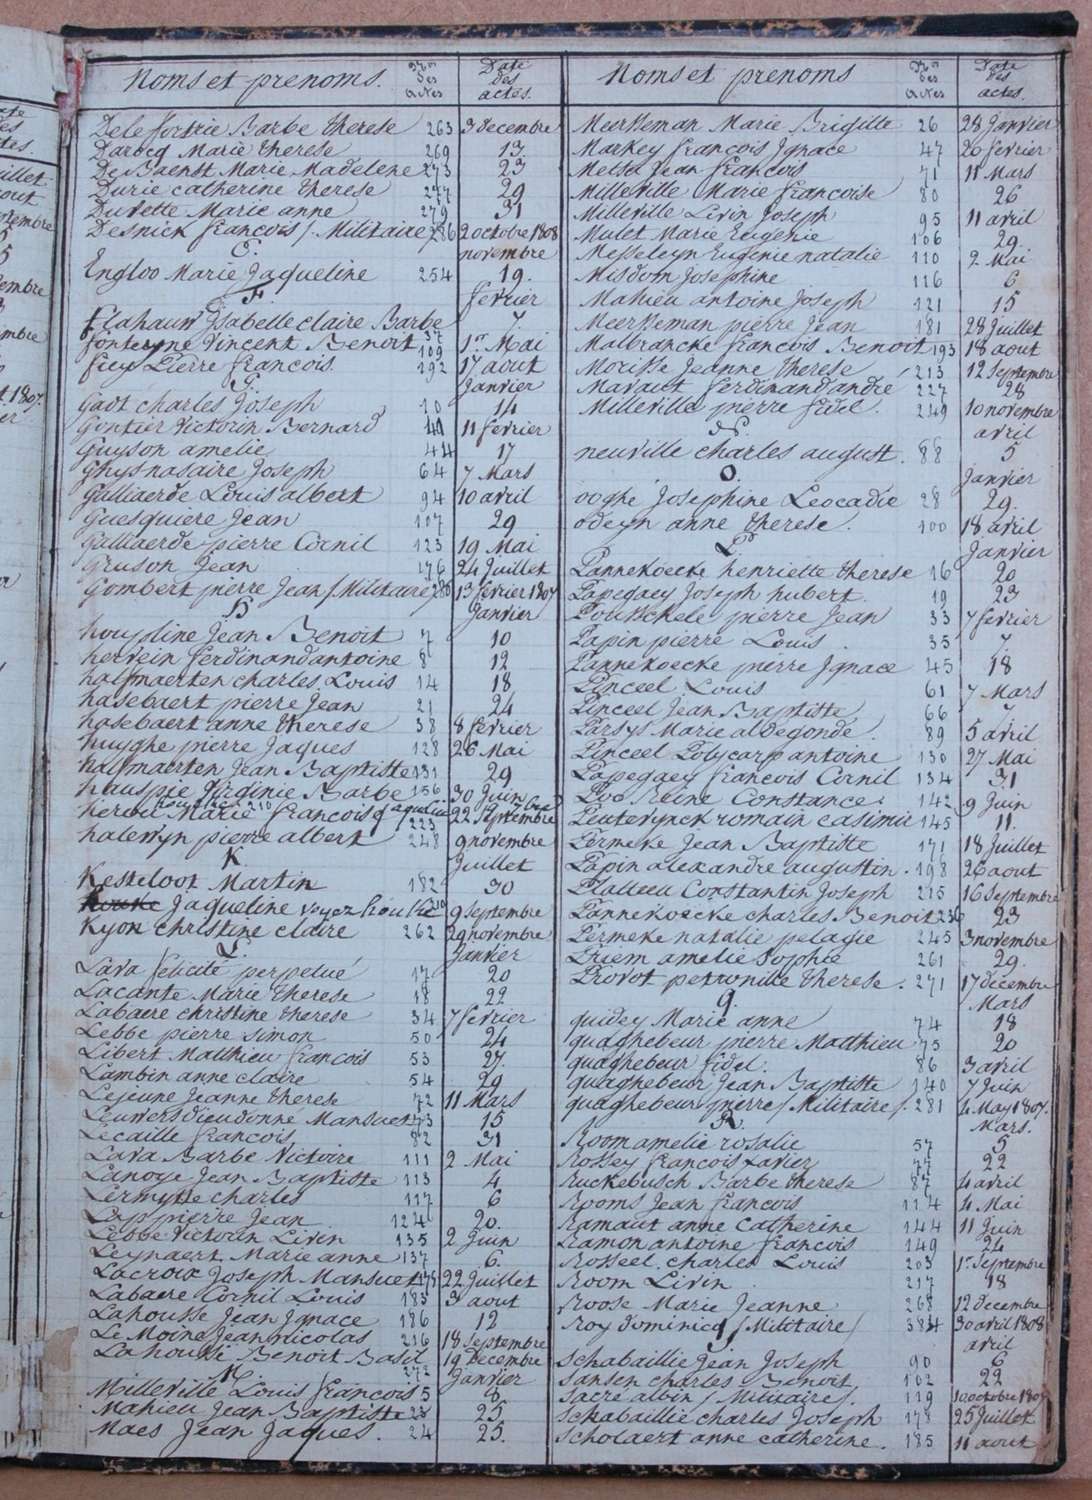 Noms et prenoms. Nos des actes Date des actes.
Delefortrie Barbe therese 263 3 decembre
Darocq Marie therese 269 13
De Baenst Marie Madelene 273 23
Durie catherine therese 277 29
Duvette Marie anne 279 31
Desnick francois / Militaire / 286 2 octobre 1808
E. novembre
Engloo Marie Jaqueline 254 19.
F. fevrier
flahauw Ysabelle claire Barbe 37 7.
fonteyne Vincent Benoit 109 1er Mai
feey Pierre francois. 192 17 aout
G. Janvier
Gadt charles Joseph 10 14
Gontier Victorin Bernard 41 11 fevrier
Guyson amelie 44 17
Ghys nasaire Joseph 64 7 Mars
Galliaerde Louis albert 94 10 avril
Guesquiere Jean 107 29
Galliaerde pierre Cornil 123 19 Mai
Gruson Jean 176 24 Juillet
Gombert pierre Jean / Militaire / 280 13 fevrier 1807
H Janvier
houpline Jean Benoit 7 10
hervein ferdinand antoine 8 12
halfmaerten charles Louis 14 18
hasebaert pierre Jean 21 24
hasebaert anne therese 38 8 fevrier
huyghe pierre Jaques 128 26 Mai
halfmaerten Jean Baptiste 131 29
hauspie Virginie Barbe 156 30 Juin
210
Marie francois Jaqueline 223 22 Septembre
halewyn pierre albert 248 9 novembre
K Juillet
Kesteloot Martin 182 30
Jaqueline voyez 210 9 Septembre
Kyon christine claire 262 29 novembre
L. Janvier
Lava felicité perpetué 17 20
Lacante Marie therese 18 22
Labaere christine therese 34 7 fevrier
Lebbe pierre simon 50 24
Libert Matthieu francois 53 27.
Lambin anne claire 54 29
Lejeune Jeanne therese 72 11 Mars
Leuwers dieudonné Mansuet 73 15
Lecaille francois 82 31
Lava Barbe Victoire 111 2 Mai
Lanoye Jean Baptiste 113 4
Lermytte charles 117 6
Lap pierre Jean 124 20.
Lebbe Victorin Livin 135 2 Juin
Leynaert Marie anne 137 6.
Lacroix Joseph Mansuet 175 22 Juillet
Labaere Cornil Louis 183 3 aout
Lahousse Jean Ignace 186 12
Le Moine Jean nicolas 216 18 Septembre
Lahousse Benoit Basil 272 19 Decembre
M Janvier
Milleville Louis francois 5 8
Mahieu Jean Baptiste 23 25
Maes Jean Jaques. 24 25.
Noms et prenoms Nos des actes Date des actes.
Meerseman Marie Brigitte 26 28 Janvier
Markey francois Ignace 47 20 fevrier
Metsu Jean francois 71 11 Mars
Milleville Marie francoise 80 26
Milleville Livin Joseph 95 11 avril
Mulet Marie Eugenie 106 29.
Messeleyn Eugenie natalie 110 2 Mai
Misdom Josephine 116 6
Mahieu antoine Joseph 121 15
Meerseman pierre Jean 181 28 Juillet
Malbrancke francois Benoit 193 18 aout
Morisse Jeanne therese 213 12 Septembre
Mavaut ferdinand andré 227 28
Milleville pierre fidel. 249 10 novembre
N. avril
neuville charles august. 88 5
O. Janvier
ooghe Josephine Leocadie 28 29.
odeyn anne therese. 100 18 avril
P Janvier
Pannekoecke henriette therese 16 20
Papegaey Joseph hubert. 19 23
Pousschele pierre Jean 33 7 fevrier
Papin pierre Louis. 35 7.
Pannekoecke pierre Ignace 45 18
Pinceel Louis 61 7 Mars
Pinceel Jean Baptiste 66 7
Parsys Marie aldegonde. 89 5 avril
Pinceel Polycarp antoine 130 27 Mai
Papegaey francois Cornil 134 31
Poo Reine Constance. 142 9 Juin
Peuterynck romain casimir 145 11.
Permeke Jean Baptiste 171 18 Juillet
Papin alexandre augustin. 198 26 aout
Platteeu Constantin Joseph 215 16 Septembre
Pannekoecke charles Benoit 236 23
Permeke natalie pelagie 245 3 novembre
Priem amelie Sophie 261 29.
Provot petronille therese. 271 17 decembre
Q. Mars
quidey Marie anne 74 18
quaghebeur pierre Matthieu 75 20
quaghebeur fidel. 86 3 avril
quaghebeur Jean Baptiste 140 7 Juin
quaghebeur pierre / Militaire /. 281 4 May 1807.
R. Mars.
Room amelie rosalie 57 5
Rossey francois xavier 77 22
Ruckebusch Barbe therese 87 4 avril
Rooms Jean francois 114 4 Mai
Ramaut anne Catherine 144 11 Juin
Ramon antoine francois 149 24
Rosseel charles Louis 203 1er Septembre
Room Livin 217 18
Roose Marie Jeanne 268 12 decembre
Roy dominicq / Militaire / 384 30 avril 1808
S avril
Schabaillie Jean Joseph 90 6
Sansen charles Benoit 102 22
Sacré albin / Militaire /. 119 10 octobre 1807
Schabaillie charles Joseph 178 25 Juillet
Scholaert anne catherine. 185 11 aout